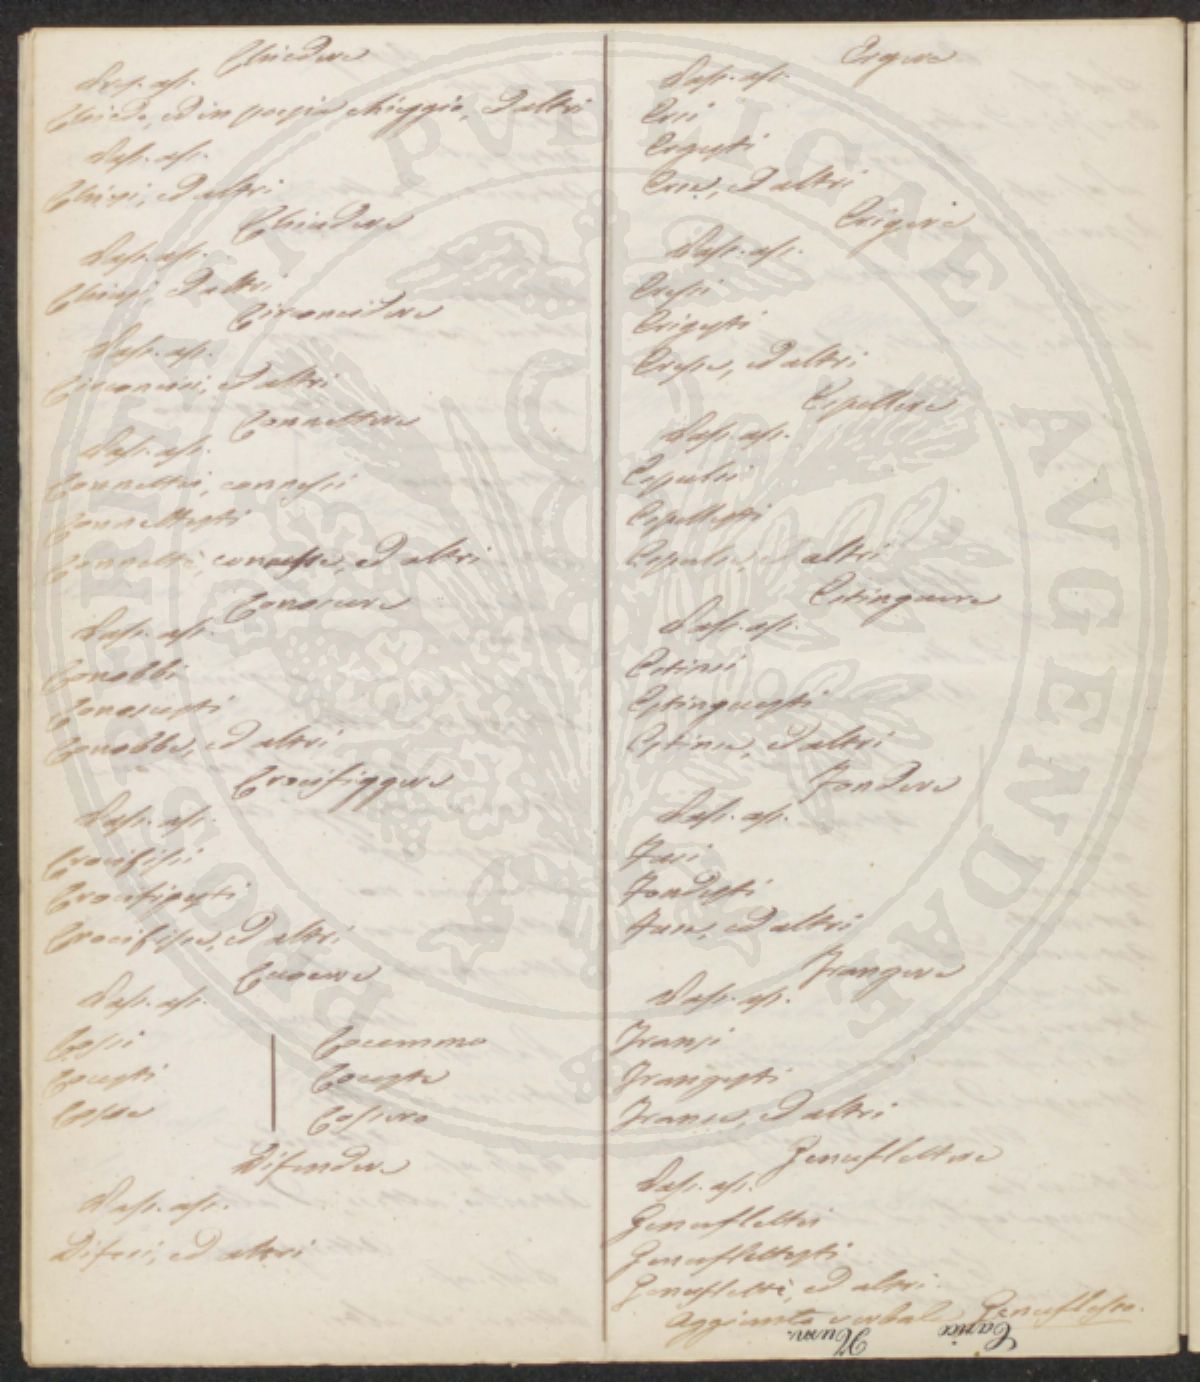 Chiedere
Pres. ass.
Chiedo, ed in poesia chieggio, ed altri
Pass. ass.
Chiesi, ed altri
Chiudere
Pass. ass.
Chiusi, ed altri
Circoncidere
Pass. ass.
Circoncisi, ed altri
Connettere
Pass. ass.
Connettei, connessi
Connettesti
Connettè, connesse, ed altri
Conoscere
Pass. ass.
Conobbi
Conoscesti
Conobbe, ed altri
Crocifiggere
Pass. ass.
Crocifissi
Crocifigesti
Crocifisse, ed altri
Cuocere
Pass. ass.
Cossi
Cocesti
Cosse
Cocemmo
Coceste
Cossero
Difendere
Pass. ass.
Difesi, ed altri
Ergere
Pass. ass.
Ersi
Ergesti
Erse, ed altri
Erigere
Pass. ass.
Eressi
Erigesti
Eresse, ed altri
Espellere
Pass. ass.
Espulsi
Espellesti
Espulse, ed altri
Estinguere
Pass. ass.
Estinsi
Estinguesti
Estinse, ed altri
Fondere
Pass. ass.
Fusi
Fondesti
Fuse, ed altri
Frangere
Pass. ass.
Fransi
Frangesti
Franse, ed altri
Genuflettere
Pass. ass.
Genuflettei
Genuflettesti
Genuflettè, ed altri.
Aggiunto verbale Genuflesso.
PROSPERITATI PVBLICAE AVGENDAE